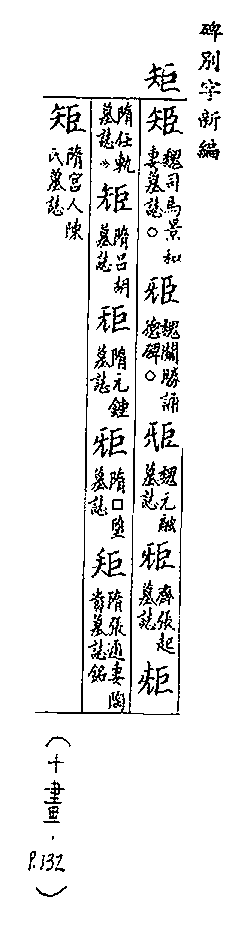 碑別字新編
矩
矩魏司馬景和妻墓誌。矩魏關勝誦德碑。矩魏元融墓誌矩齊張起墓誌矩
隋任軌墓誌。矩隋呂胡墓誌矩隋元鍾墓誌矩隋□墓誌矩隋張通妻陶貴墓誌銘
矩隋宮人陳氏墓誌
(十畫.P.132)